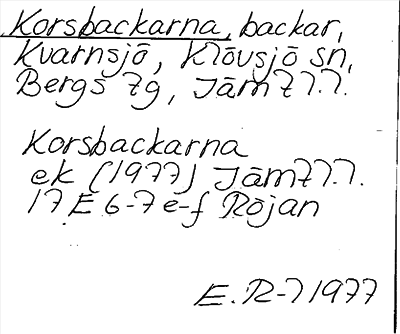 Korsbackarna, backar,
Kvarnsjö, Klövsjö sn,
Bergs tg, Jämtl.
Korsbackarna
ek (1977) Jämtl.
17 E 6-7 e-f Röjan
E. R-l 1977